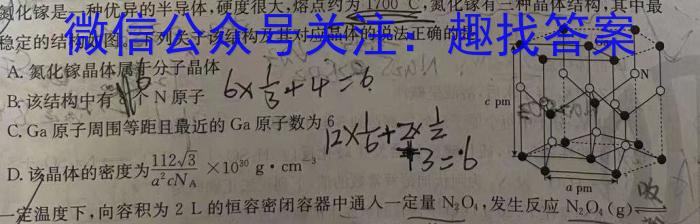 氮化镓是一种优异的半导体,硬度很大,熔点约为1700 ℃,氮化镓有三种晶体结构,其中最
稳定的结构如图。下列关于该结构及其对应晶体的说法正确的是
微信公众号关注:趣找答案
A. 氮化镓晶体属于分子晶体
B. 该结构中有 个 N 原子
6×1/3+4=6
C. Ga 原子周围等距且最近的 Ga 原子数为 6
12×1/6+2×1/2
+3=6
D. 该晶体的密度为112√3/a²cN_A ×10³⁰ g·cm⁻³
N
c pm
a pm
一定温度下,向容积为 2 L 的恒容密闭容器中通入一定量 N₂O₄,发生反应 N₂O₄(g)